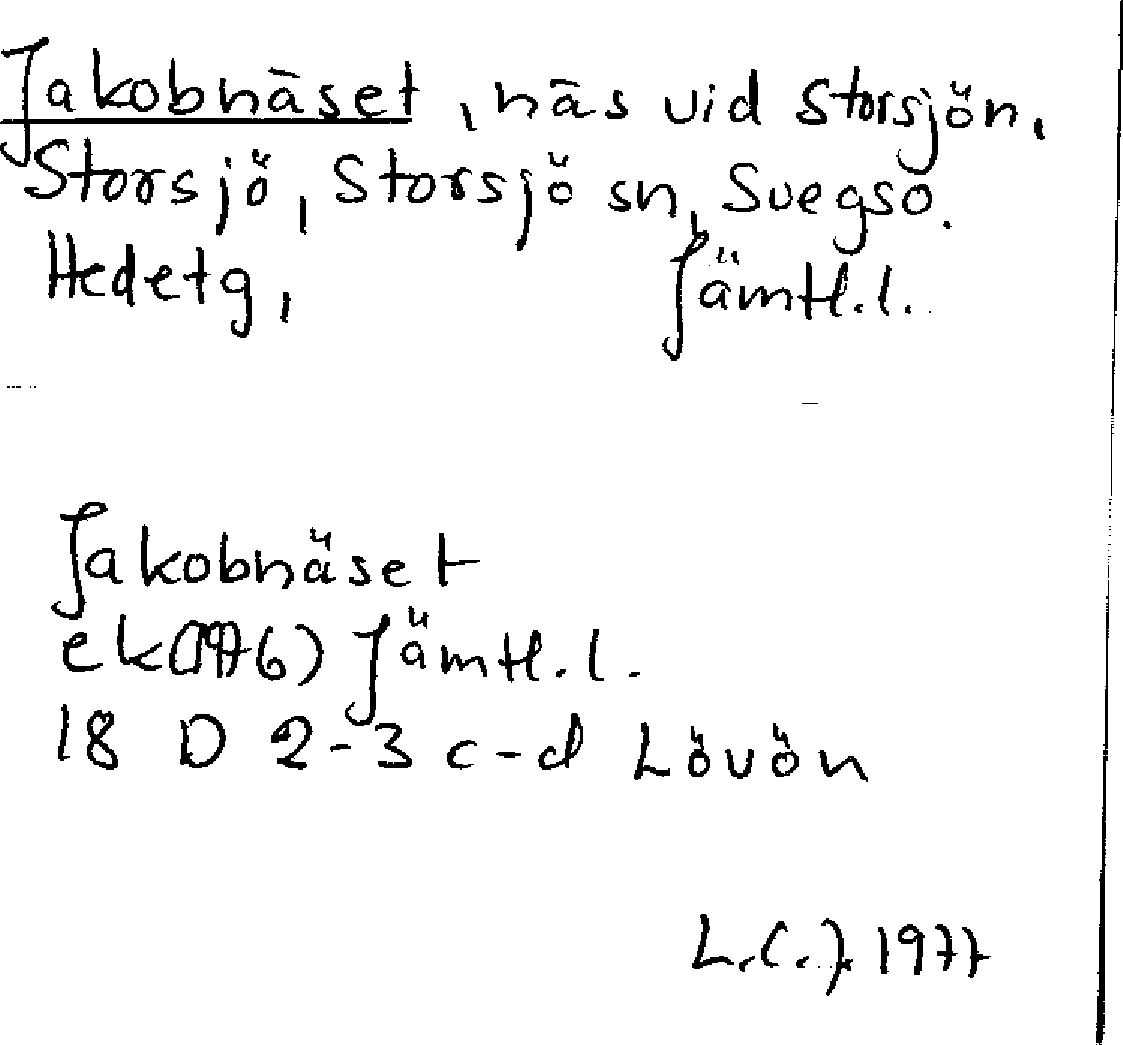 Jakobnäset, näs vid Storsjön,
Storsjö, Storsjö sn, Svegs o.
Hedetg, Jämtl.l.
Jakobnäset
ek(1976) Jämtl.l.
18 D 2-3 c-d Lövön
L.C.J. 1977